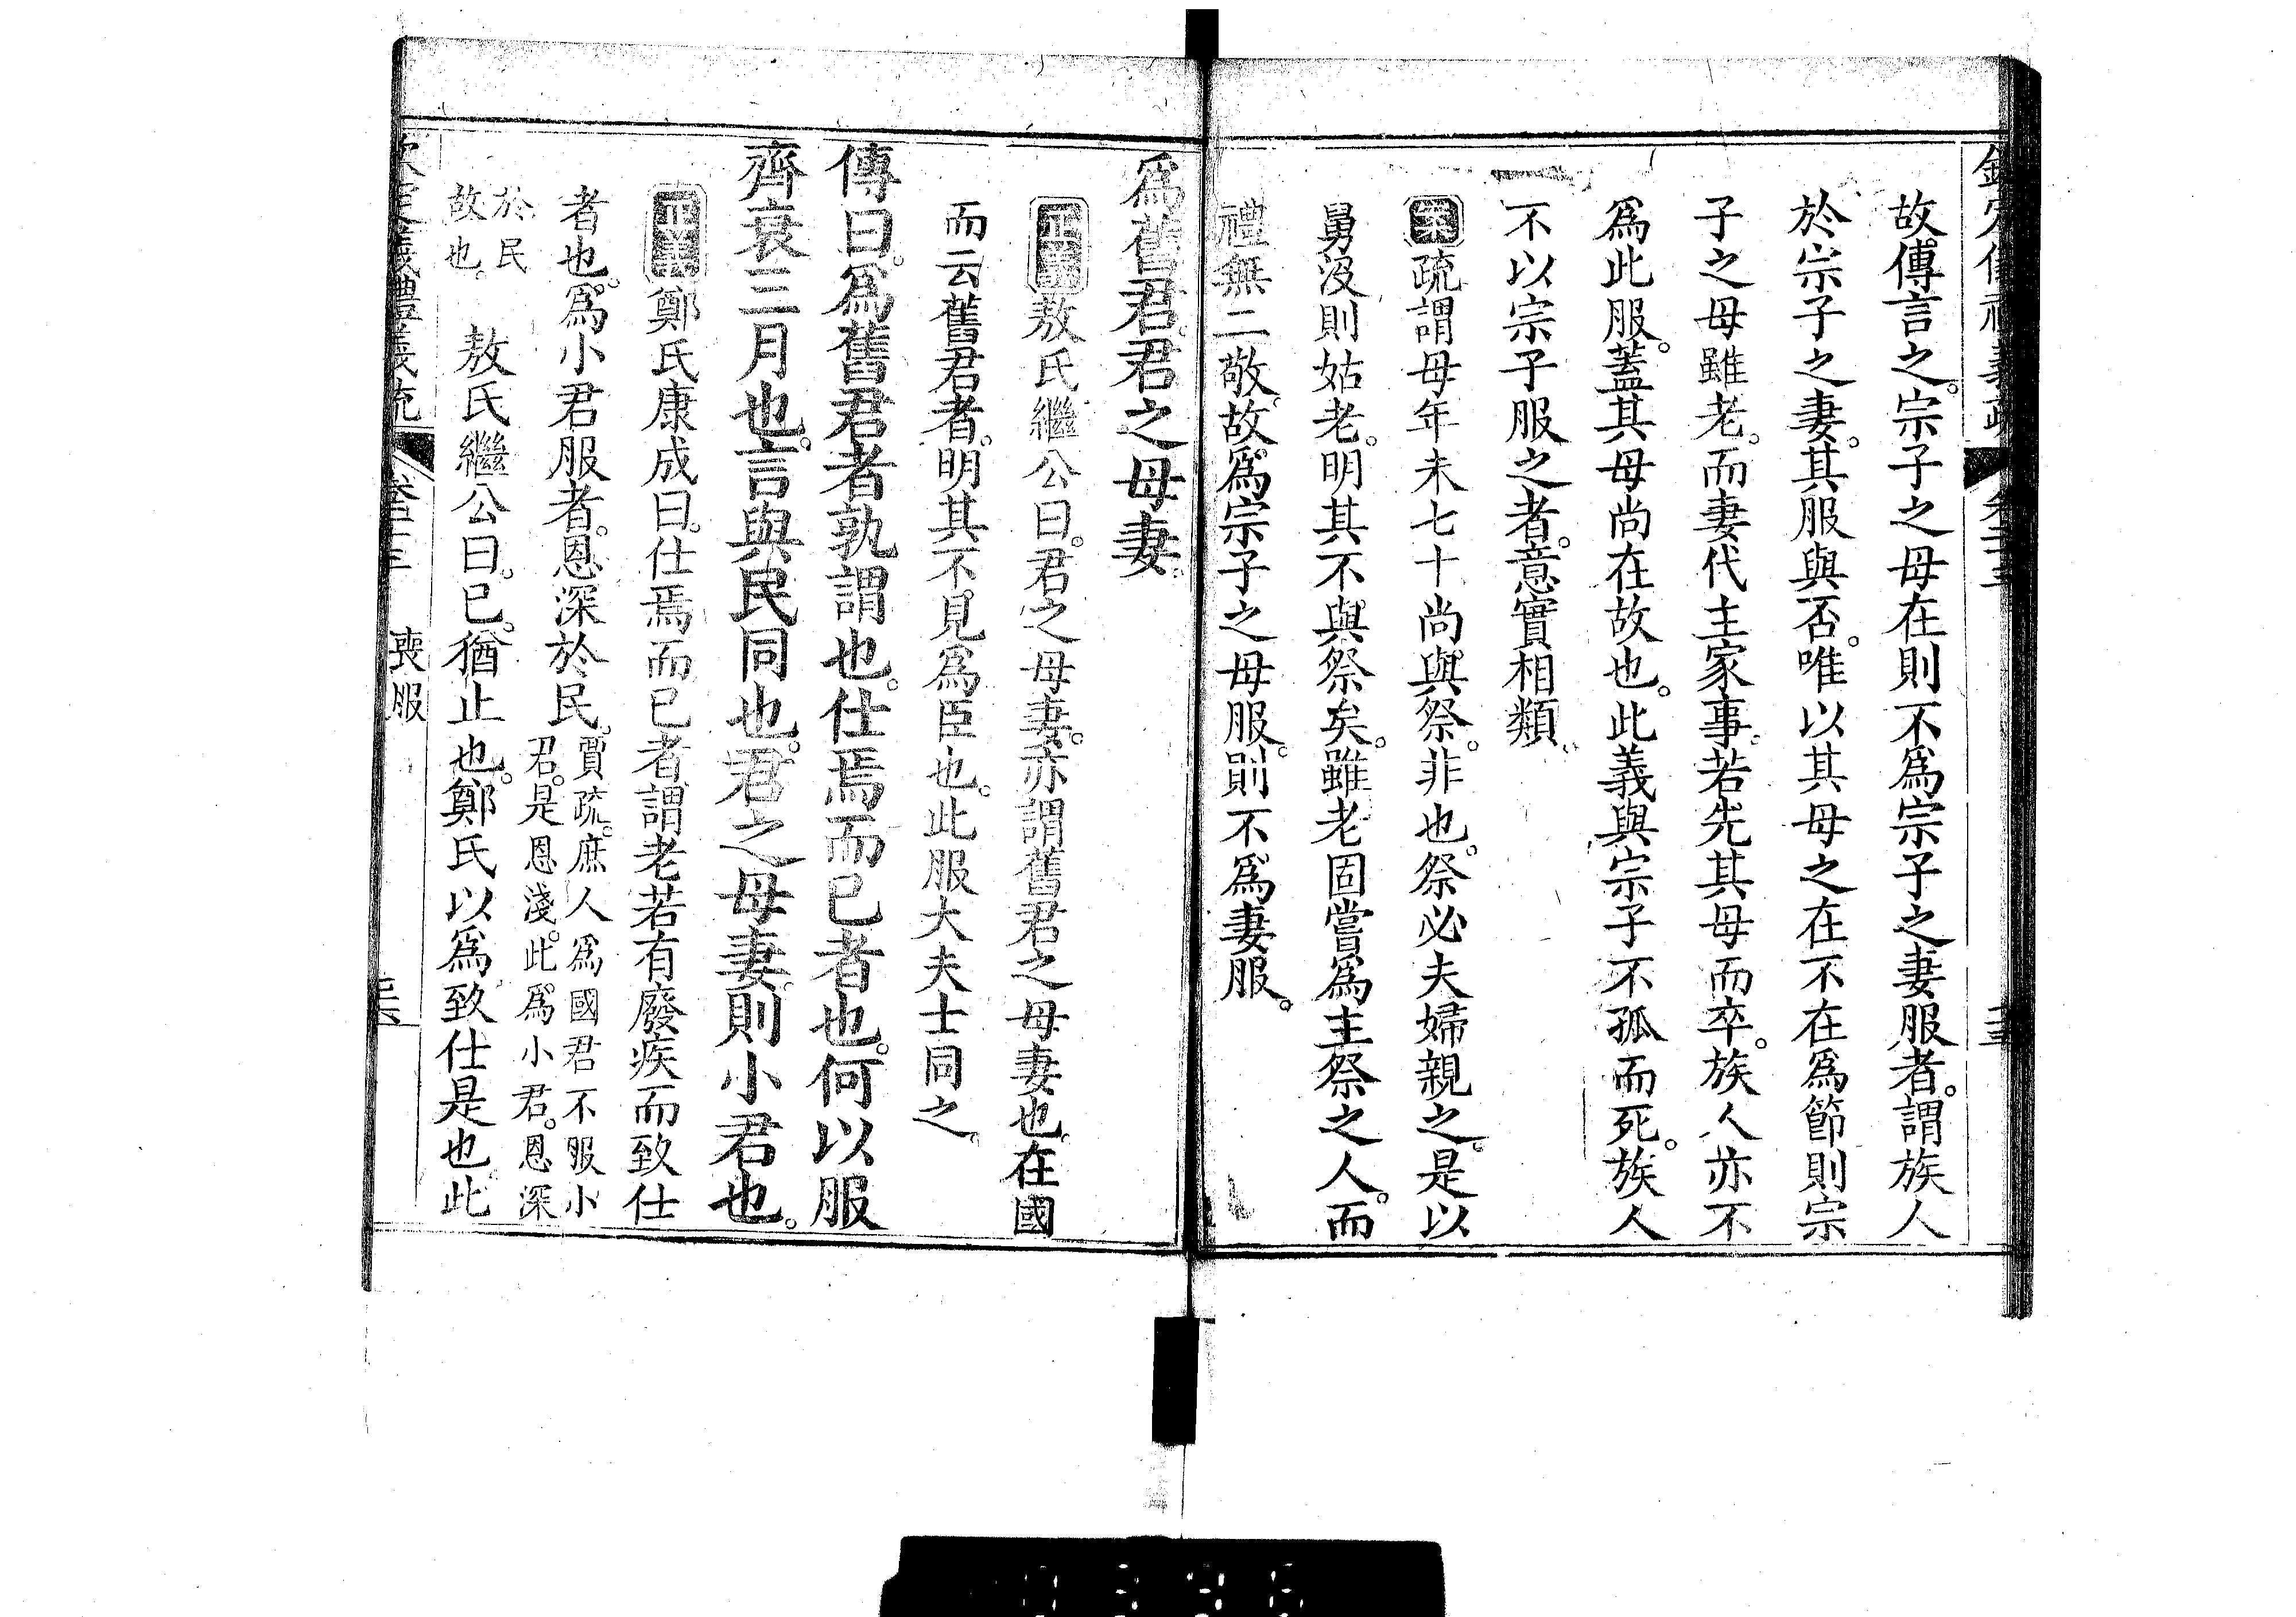 故傳言之。宗子之母在則不爲宗子之妻服者。謂族人
於宗子之妻。其服與否。唯以其母之在不在爲節則宗
子之母雖老。而妻代主家事。若先其母而卒。族人亦不
爲此服。蓋其母尚在故也。此義與宗子不孤而死。族人
不以宗子服之者。意實相類。
案疏謂母年未七十尚與祭。非也。祭必夫婦親之。是以
舅沒則姑老。明其不與祭矣。雖老固嘗爲主祭之人。而
禮無二敬。故爲宗子之母服。則不爲妻服。
爲舊君。君之母妻。
正義敖氏繼公曰。君之母妻。亦謂舊君之母妻也。在國
而云舊君者。明其不見爲臣也。此服大夫士同之。
傳曰。爲舊君者孰謂也。仕焉而已者也。何以服
齊衰三月也。言與民同也。君之母妻。則小君也。
正義鄭氏康成曰。仕焉而已者。謂老若有廢疾而致仕
者也。爲小君服者。恩深於民。
賈疏。庶人爲國君不服小
君。是恩淺。此爲小君。恩深
於民
故也。
敖氏繼公曰。已。猶止也。鄭氏以爲致仕是也。此
喪服